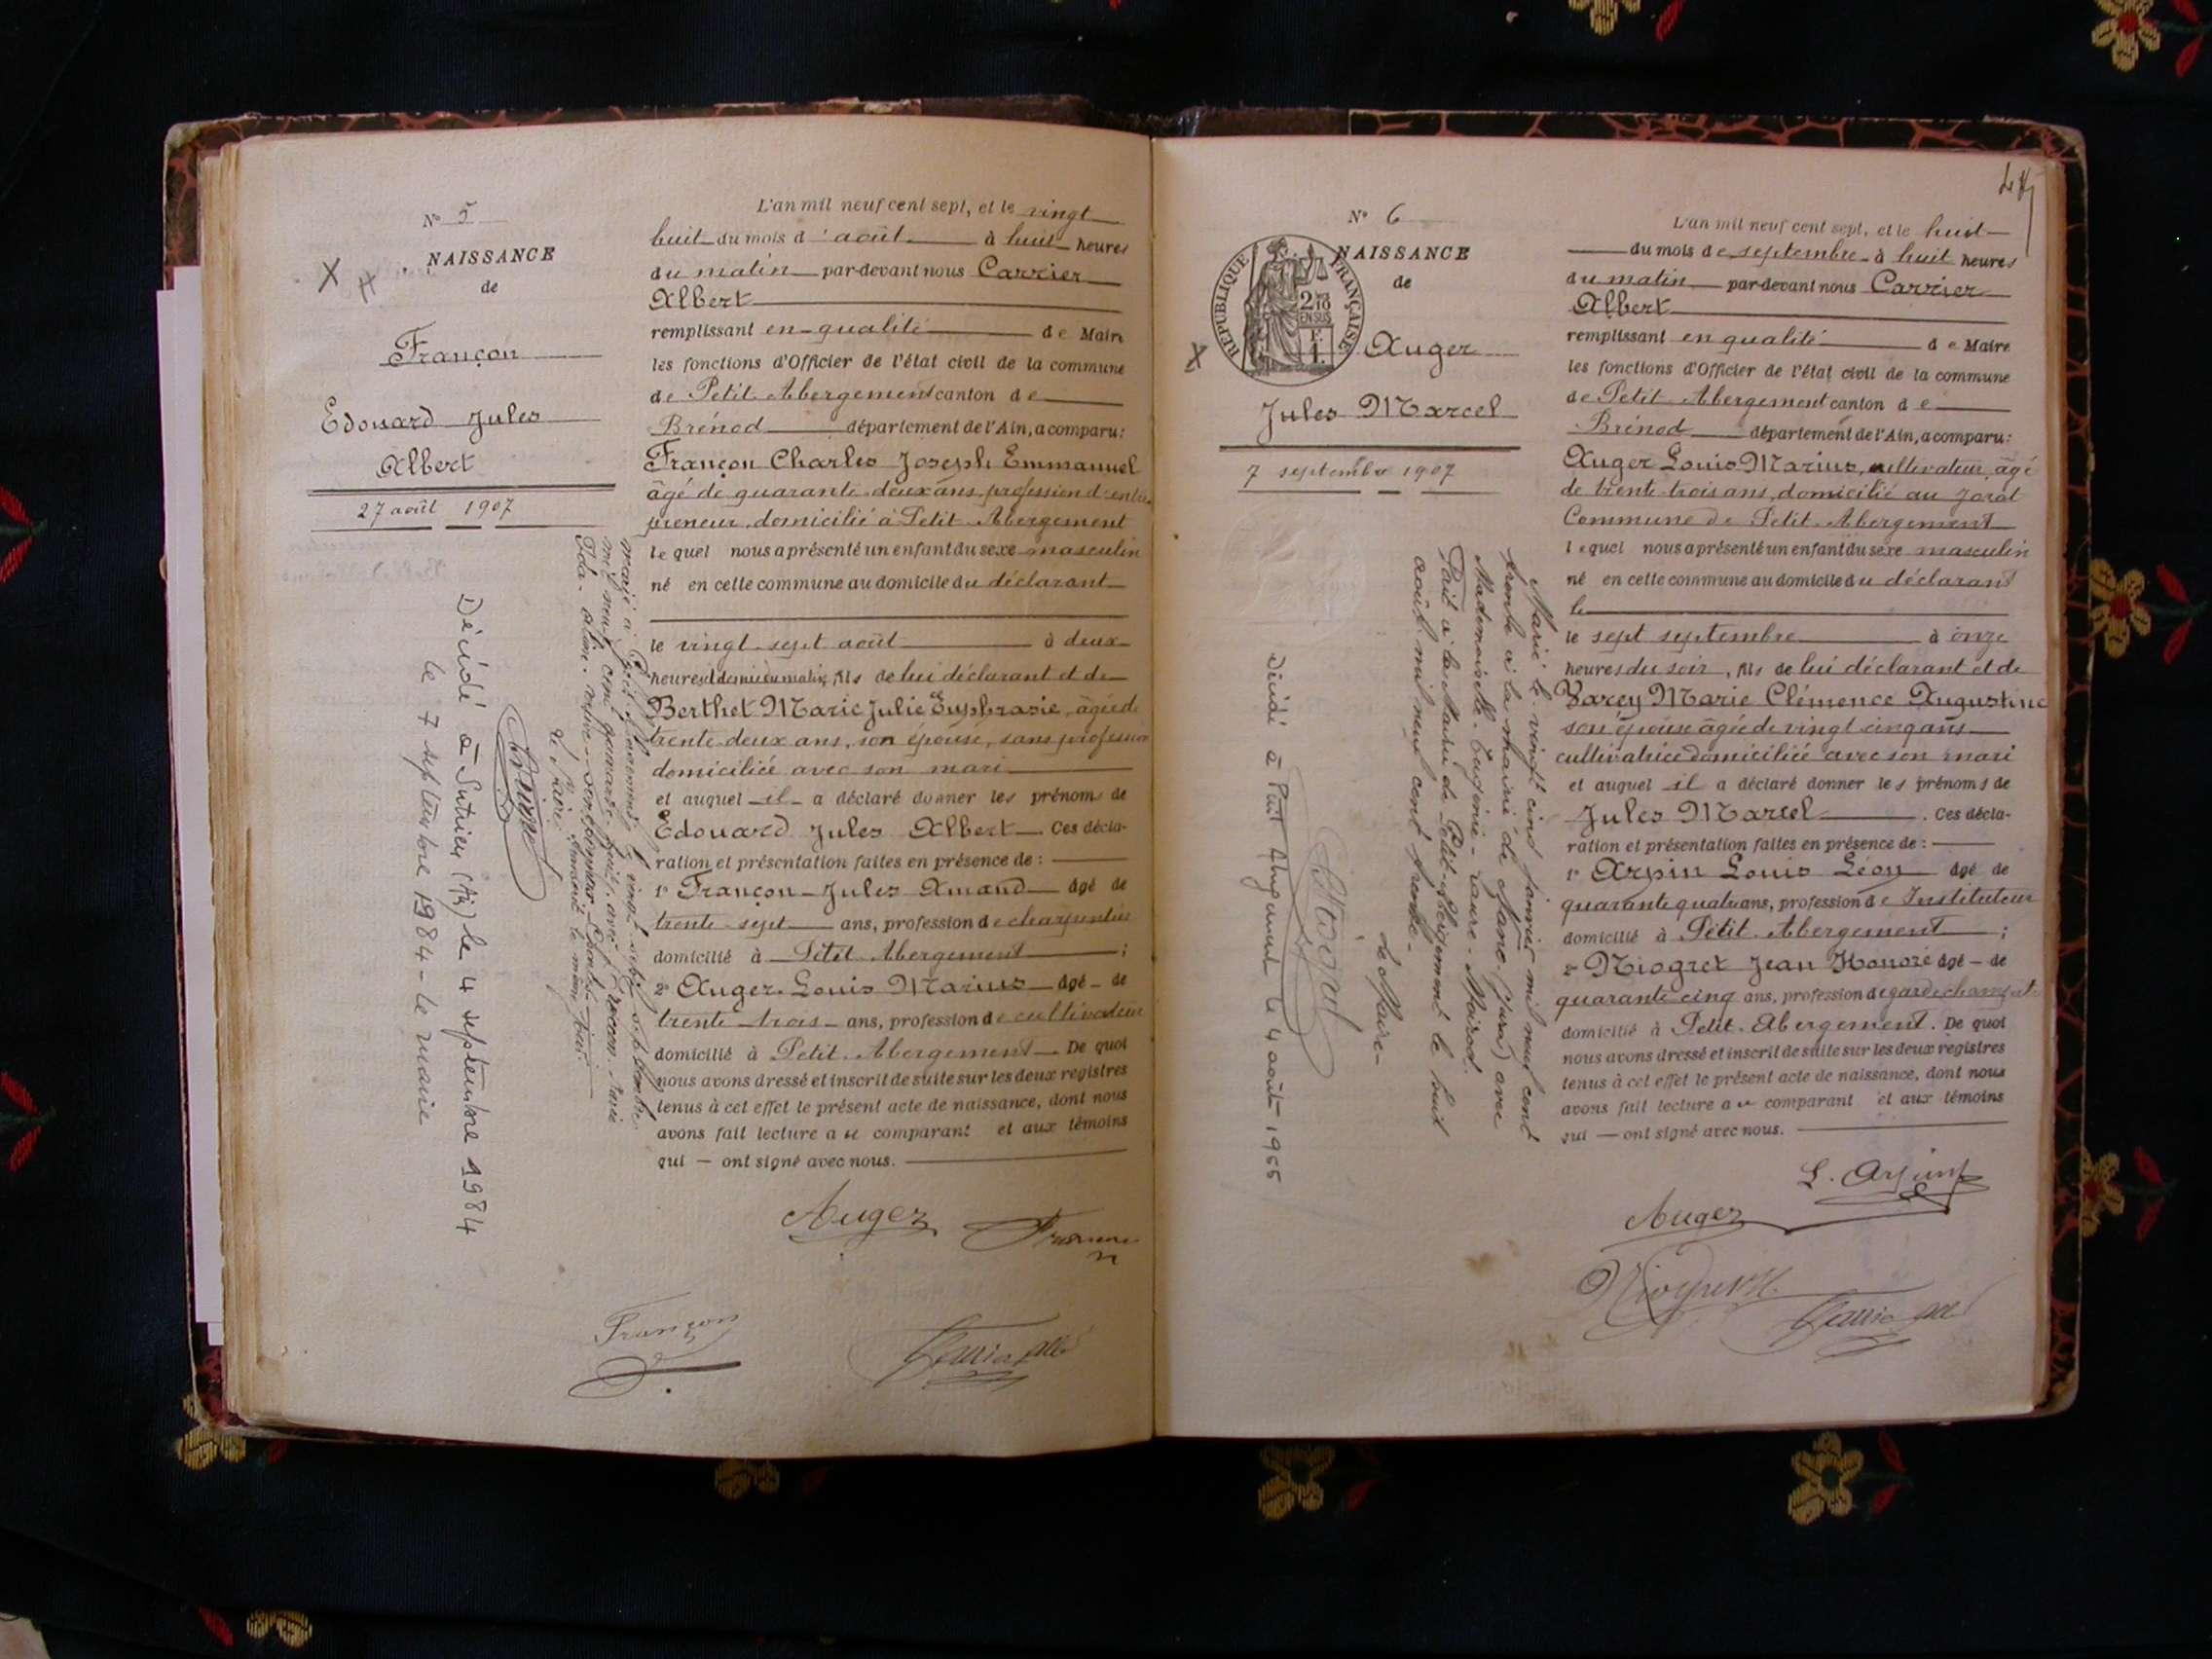 N° 5
NAISSANCE
de
Françon
Edouard Jules
Albert
27 août 1907
L'an mil neuf cent sept, et le vingt
huit du mois d'août à huit heures
du matin par-devant nous Carrier
Albert
remplissant en qualité de Maire
les fonctions d'Officier de l'état civil de la commune
de Petit Abergement canton de
Brénod département de l'Ain, a comparu:
Françon Charles Joseph Emmanuel
âgé de quarante deux ans profession d'entre
preneur, domicilié à Petit Abergement
lequel nous a présenté un enfant du sexe masculin
né en cette commune au domicile du déclarant
le vingt sept août à deux
heures et demie du matin, fils de lui déclarant et de
Berthet Marie Julie Euphrasie, âgée de
trente-deux ans, son épouse, sans profession
domiciliée avec son mari
et auquel il a déclaré donner les prénoms de
Edouard Jules Albert Ces décla-
ration et présentation faites en présence de :
1° Françon Jules Amand âgé de
trente-sept ans, profession de charpentier
domicilié à Petit Abergement ;
2° Auger Louis Marius âgé de
trente trois ans, profession de cultivateur
domicilié à Petit Abergement. De quoi
nous avons dressé et inscrit de suite sur les deux registres
tenus à cet effet le présent acte de naissance, dont nous
avons fait lecture au comparant et aux témoins
qui ont signé avec nous.
Auger
Françon
Décédé à Sutrieu (Ain) le 4 septembre 1984
le 7 septembre 1984 - le maire
le Maire
N° 6
NAISSANCE
de
REPUBLIQUE FRANÇAISE
2/10
EN SUS
F.
1.
Auger
Jules Marcel
7 septembre 1907
L'an mil neuf cent sept, et le huit
du mois de septembre à huit heures
du matin par-devant nous Carrier
Albert
remplissant en qualité de Maire
les fonctions d'Officier de l'état civil de la commune
de Petit Abergement canton de
Brénod département de l'Ain, a comparu:
Auger Louis Marius, cultivateur âgé
de trente-trois ans, domicilié au Jorat
Commune de Petit Abergement
lequel nous a présenté un enfant du sexe masculin
né en cette commune au domicile du déclarant
le
le sept septembre à onze
heures du soir, fils de lui déclarant et de
Varey Marie Clémence Augustine
son épouse âgée de vingt cinq ans
cultivatrice domiciliée avec son mari
et auquel il a déclaré donner les prénoms de
Jules Marcel. Ces décla-
ration et présentation faites en présence de :
1° Arpin Louis Léon âgé de
quarante quatre ans, profession de Instituteur
domicilié à Petit Abergement ;
2° Niogret Jean Honoré âgé de
quarante cinq ans, profession de garde champêtre
domicilié à Petit Abergement. De quoi
nous avons dressé et inscrit de suite sur les deux registres
tenus à cet effet le présent acte de naissance, dont nous
avons fait lecture au comparant et aux témoins
qui ont signé avec nous.
L. Arpin
Auger
Marié le vingt cinq janvier mil neuf cent
trente à la mairie de (Jura) avec
Mademoiselle Eugénie - Laure - Moirod.
Fait à la Mairie de Petit-Abergement le huit
août mil neuf cent trente -
le Maire -
Décédé à Petit Abergement le 4 août 1955